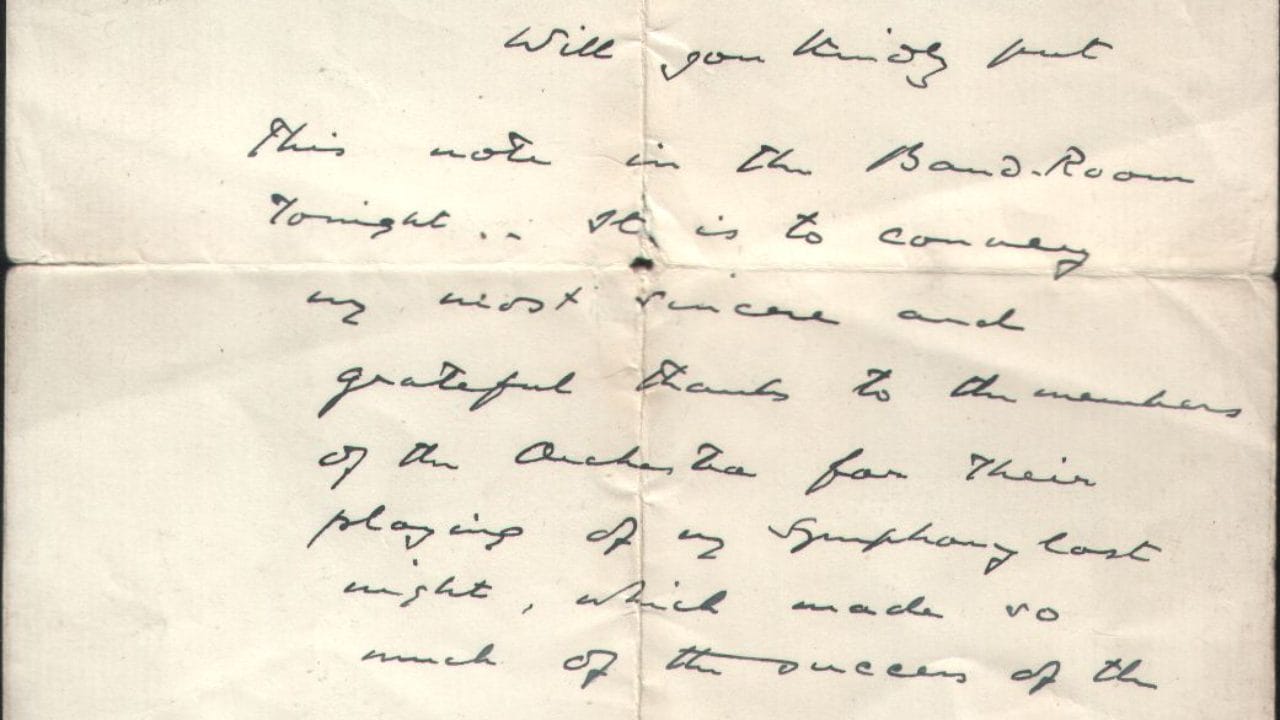 Will you kindly put
This note in the Band-Room
Tonight .. It is to convey
my most sincere and
grateful thanks to the members
of the Orchestra for Their
playing of my Symphony last
night, which made so
much of the success of the